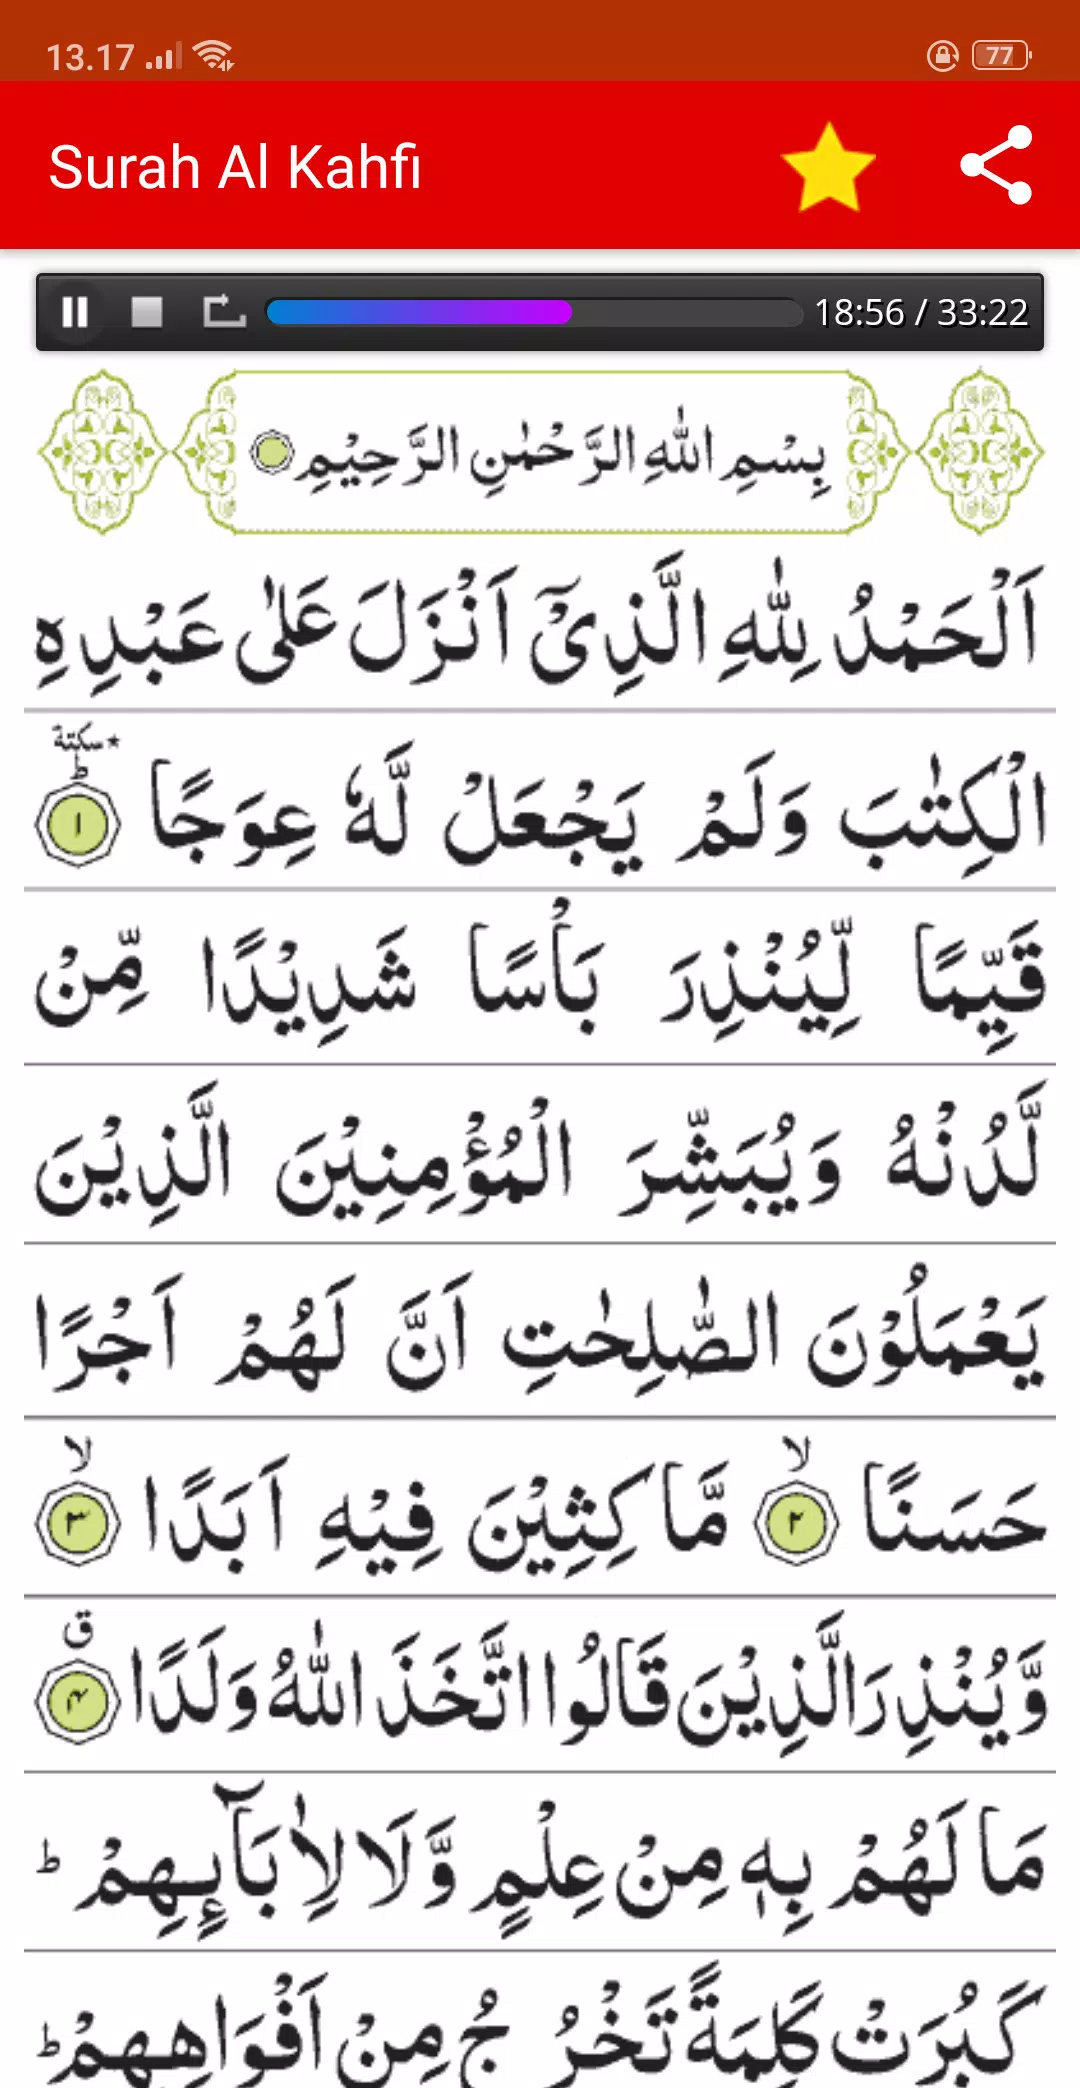 13.17
77
Surah Al Kahfi
18:56 / 33:22
بِسْمِ اللّٰهِ الرَّحْمٰنِ الرَّحِيْمِ
اَلْحَمْدُ لِلّٰهِ الَّذِىْٓ اَنْزَلَ عَلٰى عَبْدِهِ
الْكِتٰبَ وَلَمْ يَجْعَلْ لَّهٗ عِوَجًا ؕ ١ ٭سكتة
قَيِّمًا لِّيُنْذِرَ بَاْسًا شَدِيْدًا مِّنْ
لَّدُنْهُ وَيُبَشِّرَ الْمُؤْمِنِيْنَ الَّذِيْنَ
يَعْمَلُوْنَ الصّٰلِحٰتِ اَنَّ لَهُمْ اَجْرًا
حَسَنًا ۙ ٢ مَّاكِثِيْنَ فِيْهِ اَبَدًا ۙ ٣
وَّيُنْذِرَ الَّذِيْنَ قَالُوا اتَّخَذَ اللّٰهُ وَلَدًا ق ٤
مَا لَهُمْ بِهٖ مِنْ عِلْمٍ وَّلَا لِاٰبَآئِهِمْ ؕ
كَبُرَتْ كَلِمَةً تَخْرُجُ مِنْ اَفْوَاهِهِمْ ؕ